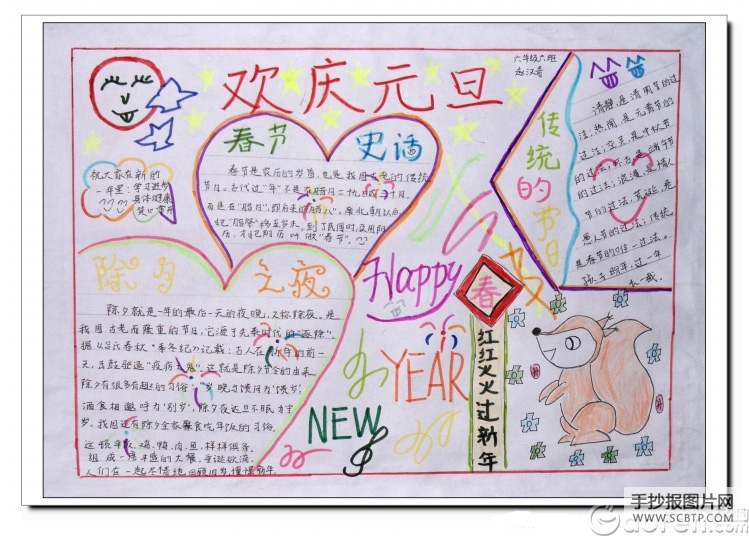 欢庆元旦
六年级六班
赵汉青
春节 史话
春节是农历的岁首,也是我国古老的传统
节日。古代过“年”不是在腊月二十九日或三十日,
而是在“腊日”,即后来的“腊八”。南北朝以后,
把“腊祭”移至岁末,到了民国时,改用阳
历,才把阴历叫做“春节”。
祝大家在新的
一年里:学习进步
身体健康
笑口常开
除夕之夜
除夕就是一年的最后一天的夜晚,又称除夜,是
我国古老而隆重的节日,它源于先秦时代的“逐除”。
据《吕氏春秋·季冬纪》记载:古人在新年的前一
天,击鼓驱逐“疫疠之鬼”,这就是除夕节令的由来。
除夕有很多有趣的习俗:“岁晚
酒食相邀 呼为‘别岁’,除夕夜达旦不眠,为守
岁,我国还有除夕全家聚食吃年饭的习俗。
这顿年饭,鸡、鸭、肉、鱼,样样俱备,
组成一席丰盛的大餐,垂涎欲滴,
人们在一起尽情地
Happy
NEW
YEAR
春
红红火火过新年
传统的节日
清静,是清明节的过
法;热闹,是元宵节的
过法;
是中秋节
的过法;
端午节
的过法;浪漫,是情人
节的过法;
是
愚人节的过法;传统,
是春节的唯一过法。
一年
手抄报图片网
WWW.SCBTP.COM